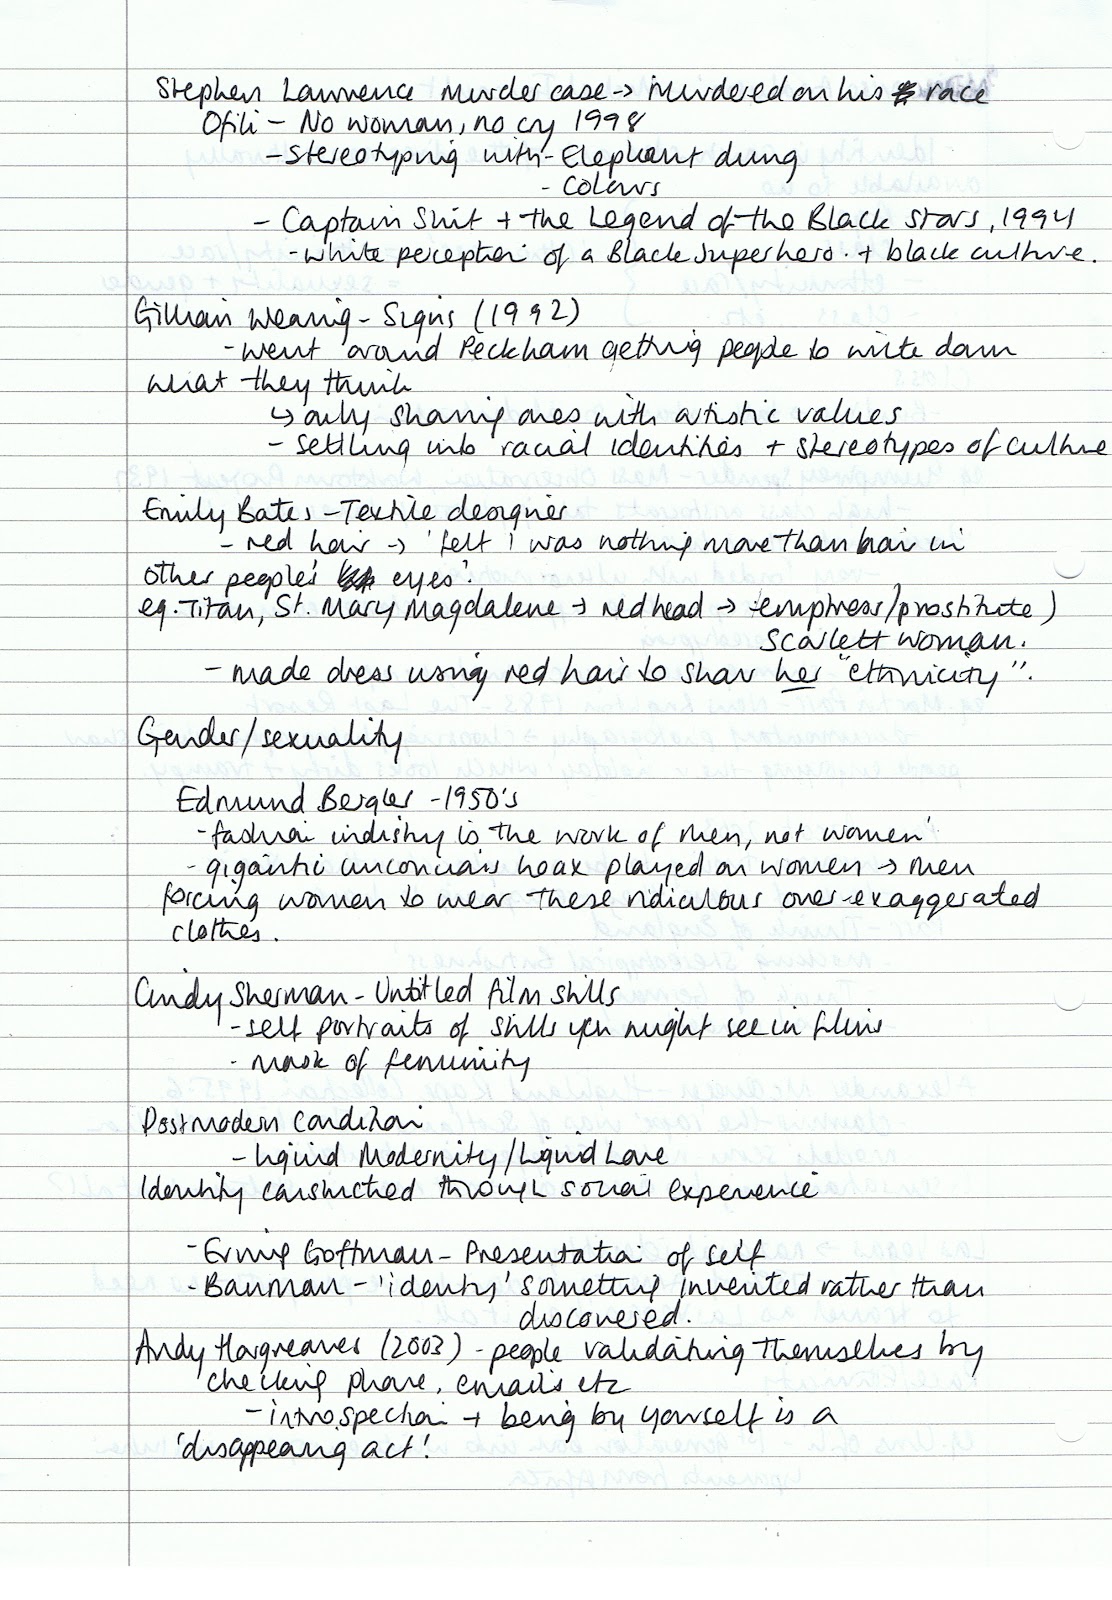 Stephen Lawrence Murder case → Murdered on his race
Ofili - No woman, no cry 1998
- Stereotyping with - Elephant dung
- colours
- Captain Shit + the Legend of the Black Stars, 1994
- white perception of a Black Superhero. + black culture.
Gillian Wearing - Signs (1992)
- went around Peckham getting people to write down
what they think
↳ only sharing ones with artistic values
- settling into racial identities + stereotypes of culture
Emily Bates - Textile designer
- red hair → 'felt I was nothing more than hair in
other people's eyes'.
eg. Titan, St. Mary Magdalene → red head → temptress/prostitute)
Scarlett woman.
- made dress using red hair to show her "ethnicity".
Gender/sexuality
Edmund Bergler - 1950's
- fashion industry is the work of men, not women'
- gigantic unconcians hoax played on women → men
forcing women to wear these ridiculous over-exaggerated
clothes.
Cindy Sherman - Untitled film stills
- self portraits of stills you might see in films
- mask of feminity
Postmodern Condition
- Liquid Modernity/Liquid Love
Identity constructed through social experience
- Erving Goffman - Presentation of self
- Bauman - 'identity' something invented rather than
discovered.
Andy Hargreaves (2003) - people validating themselves by
checking phone, emails etc
- introspection + being by yourself is a
'disappearing act'!